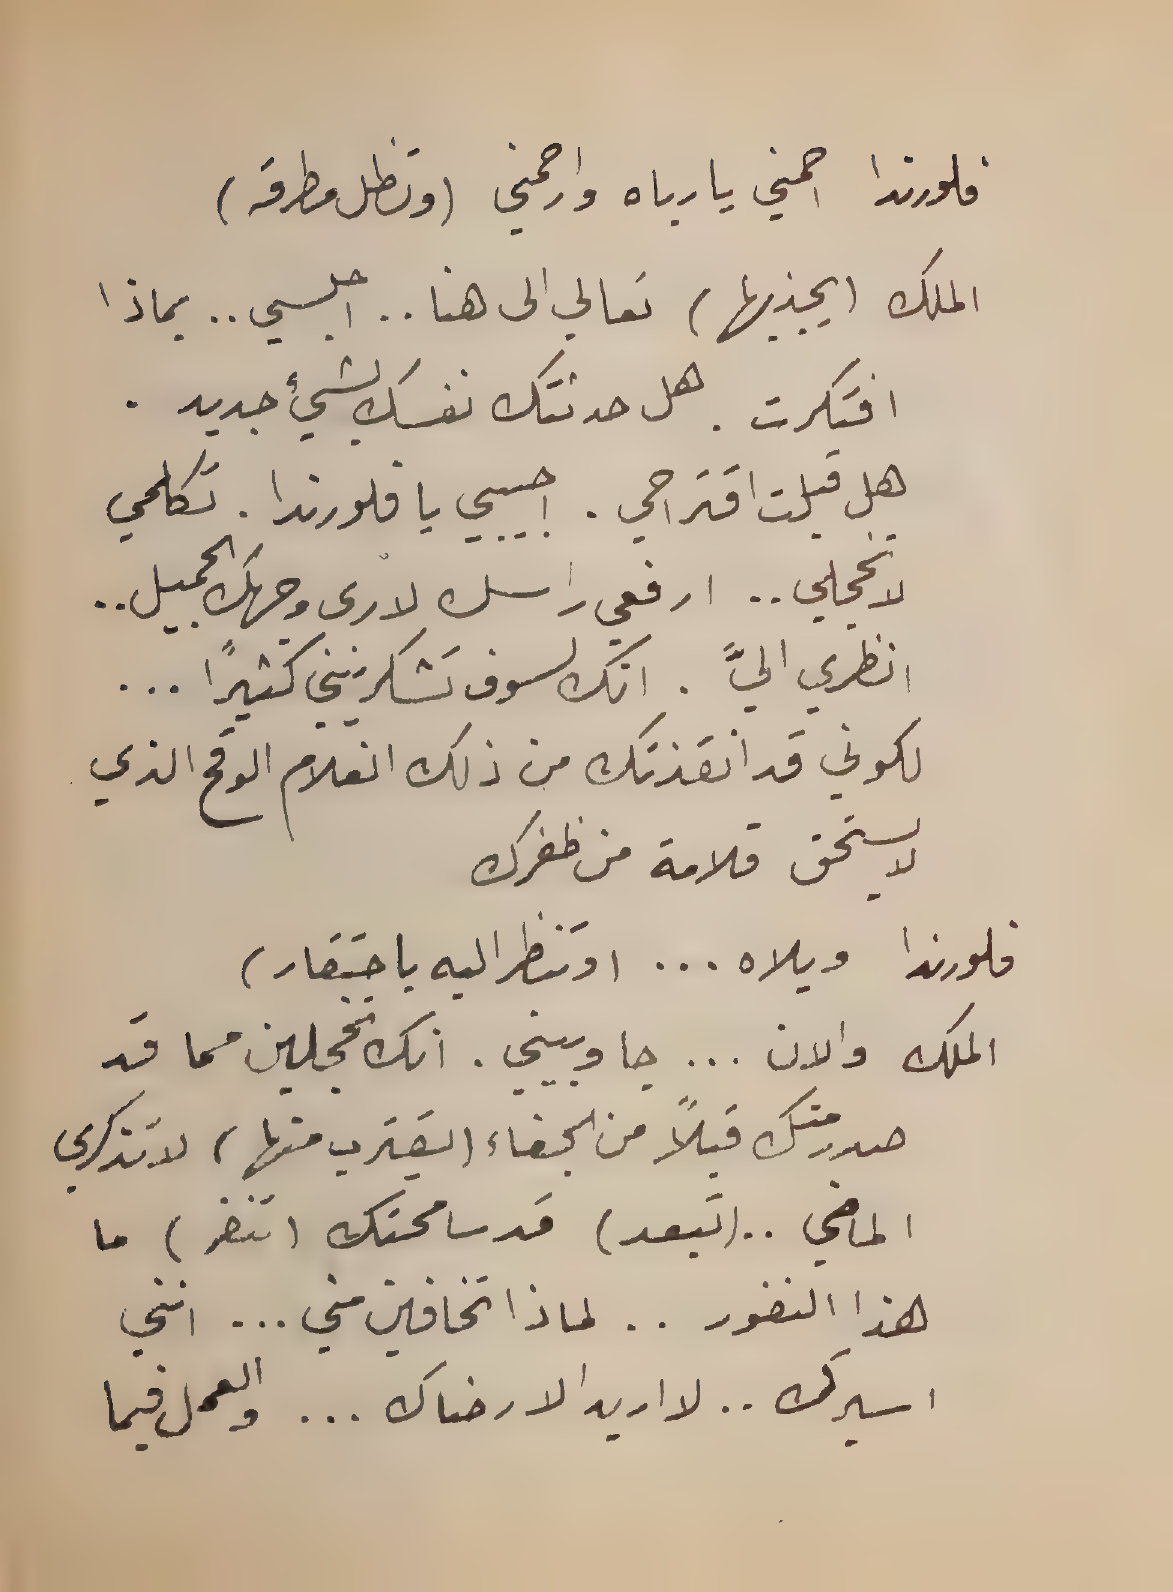 فلورندا احمني يا رباه وارحمني (وتظل مطرقة)
الملك (يجذبها) تعالي الى هنا .. اجلسي .. بماذا
افتكرت . هل حدثتك نفسك بشيءٍ جديد .
هل قبلت اقتراحي . اجيبيني يا فلورندا . تكلمي
لا تخجلي .. ارفعي راسك لأرى وجهك الجميل ..
انظري اليَّ . انك لسوف تشكرينني كثيرًا ...
لكوني قد انقذتك من ذلك الغلام الوقح الذي
لا يستحق قلامة من ظفرك
فلورندا ويلاه ... (وتنظر اليه باحتقار)
الملك والان ... جاوبيني . انك تخجلين مما قد
صدر منك قبلاً من الجفاء (يقترب منها) لا تذكري
الماضي .. (تبعد) قد سامحتك (تنفر) ما
هذا النفور .. لماذا تخافين مني ... انني
اسيرك .. لا اريد الا رضاك ... والعمل فيما